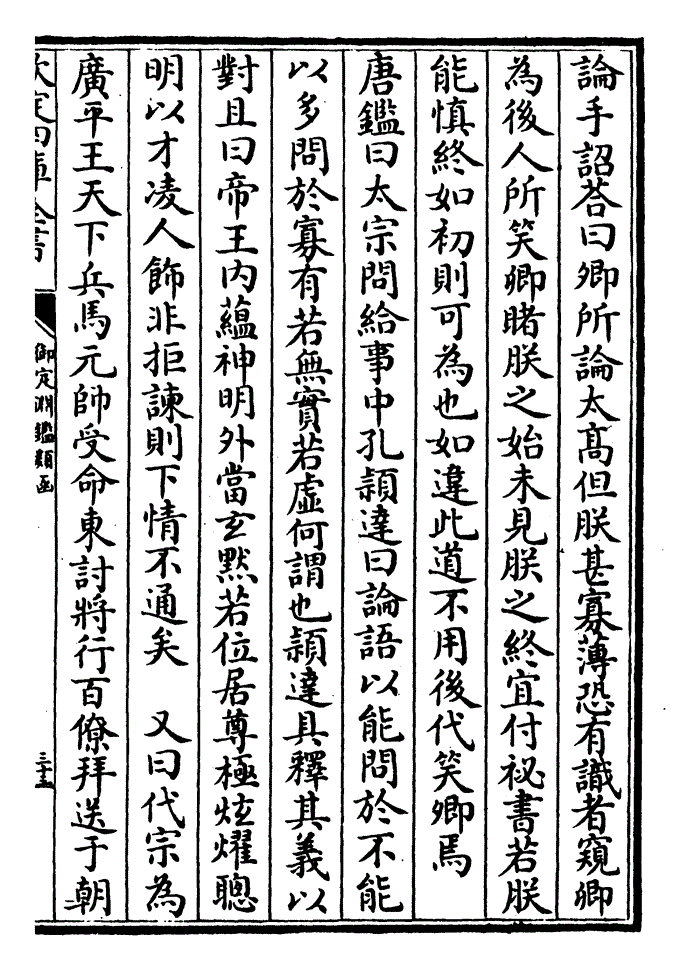 論手詔荅曰卿所論太髙但朕甚寡薄恐有識者窺卿
為後人所笑卿睹朕之始未見朕之終宜付祕書若朕
能慎終如初則可為也如違此道不用後代笑卿焉
唐鑑曰太宗問給事中孔頴達曰論語以能問於不能
以多問於寡有若無實若虛何謂也頴達具釋其義以
對且曰帝王内蘊神明外當玄默若位居尊極炫燿聰
明以才凌人飾非拒諫則下情不通矣　又曰代宗為
廣平王天下兵馬元帥受命東討將行百僚拜送于朝
欽定四庫全書
御定淵鑑類函
三十三